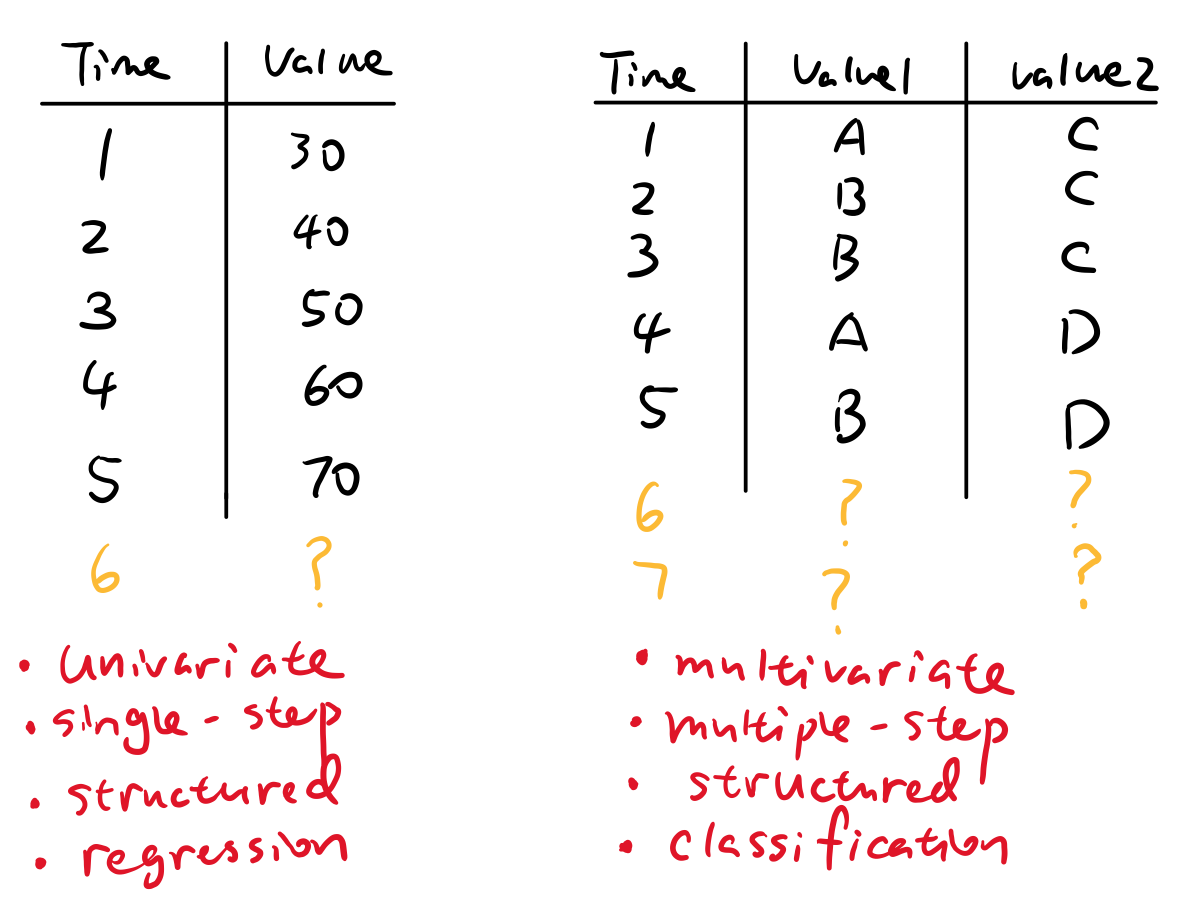 Time Value
1 30
2 40
3 50
4 60
5 70
6 ?
• univariate
• single-step
• structured
• regression
Time Value1 value2
1 A C
2 B C
3 B C
4 A D
5 B D
6 ? ?
7 ? ?
• multivariate
• multiple-step
• structured
• classification